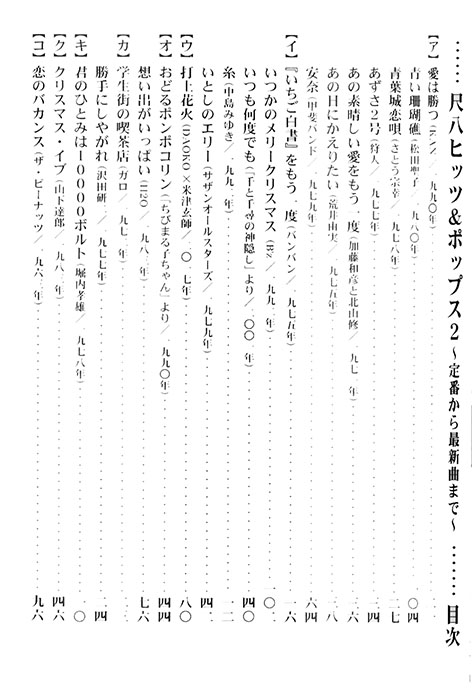 ……尺八ヒッツ&ポップス2~定番から最新曲まで~……目次
【ア】愛は勝つ(KAN/ 九九〇年)
青い珊瑚礁(松田聖子/ 九八〇年) 〇四
青葉城恋唄(さとう宗幸/ 九七八年) 七
あずさ2号(狩人/ 九七七年)
あの素晴しい愛をもう一度(加藤和彦と北山修/ 九七 年) 六
あの日にかえりたい(荒井由実/ 九七五年) 八
安奈(甲斐バンド/ 九七九年) 六四
【イ】『いちご白書』をもう一度(バンバン/ 九七五年) 六
いつかのメリークリスマス(B'z/ 九九 年) 〇
いつも何度でも(「千と千尋の神隠し」より/ 〇〇 年) 四
糸(中島みゆき/ 九九 年)
いとしのエリー(サザンオールスターズ/ 九七九年) 四
【ウ】打上花火(DAOKO×米津玄師/ 〇 七年) 八〇
【オ】おどるポンポコリン(「ちびまる子ちゃん」より/ 九九〇年) 四四
想い出がいっぱい(H2O/ 九八 年) 七六
【カ】学生街の喫茶店(ガロ/ 九七 年)
勝手にしやがれ(沢田研 / 九七七年) 四
【キ】君のひとみは10000ボルト(堀内孝雄/ 九七八年) 〇
【ク】クリスマス・イブ(山下達郎/ 九八 年) 四六
【コ】恋のバカンス(ザ・ピーナッツ/ 九六 年) 九六